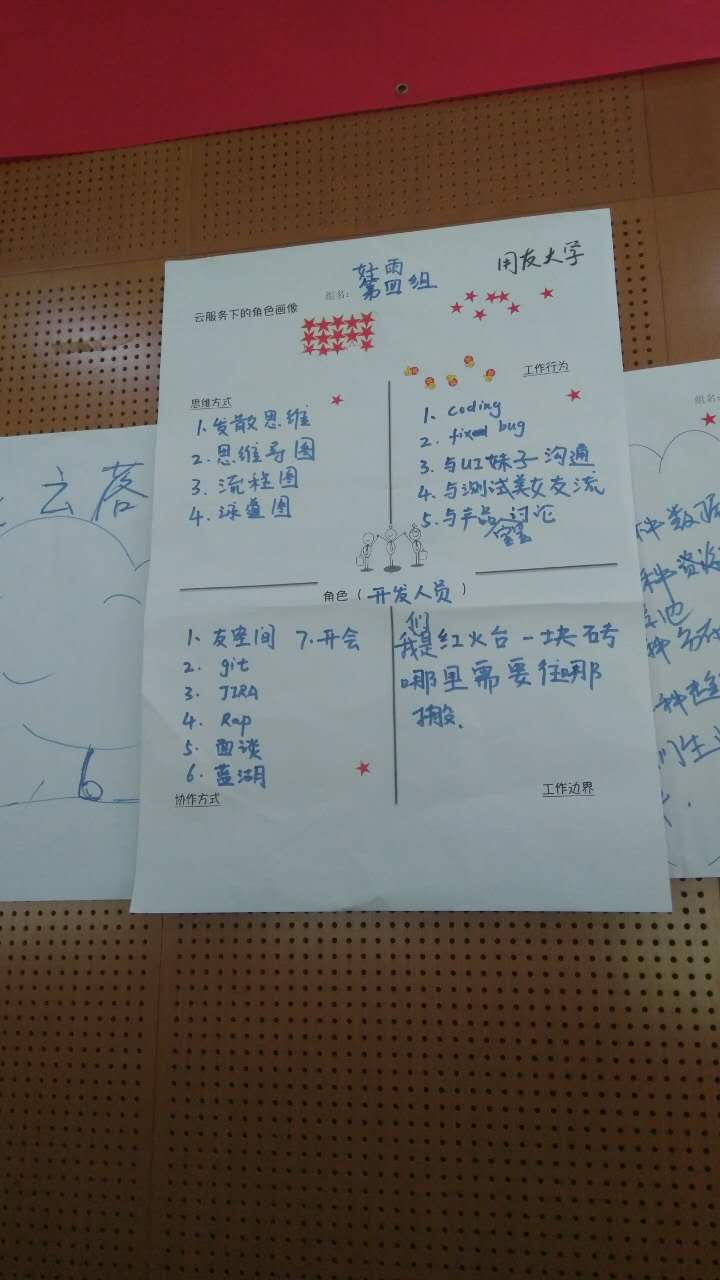 好雨
组名：第四组
用友大学
云服务下的角色画像
思维方式
1. 发散思维
2. 思维导图
3. 流程图
4. 涂鸦图
工作行为
1. coding
2. fixed bug
3. 与UI妹子沟通
4. 与测试美女交流
5. 与产品宝宝讨论
角色（开发人员）
1. 友空间 7. 开会
2. git
3. JIRA
4. Rap
5. 面谈
6. 蓝湖
协作方式
我们是红火台一块砖
哪里需要往哪
搬.
工作边界
云落
6
组名:
种数据
种资源